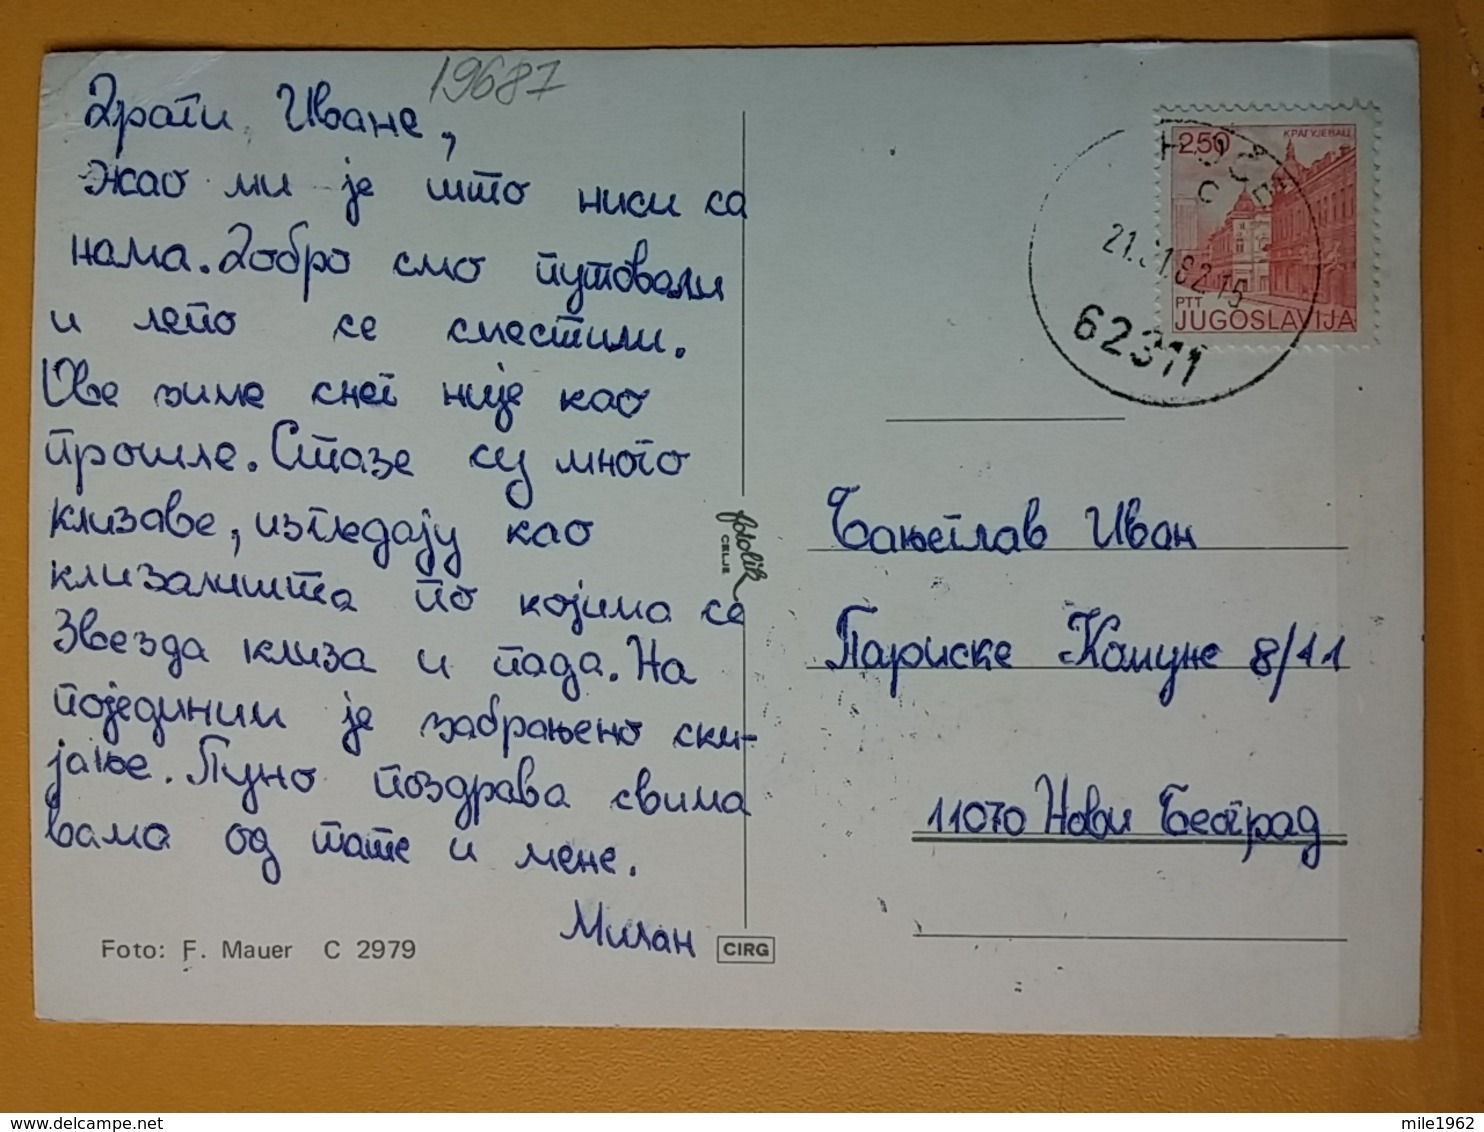 19687
Драги Иване,
жао ми је што ниси са
нама. Добро смо путовали
и лепо се сместили.
Ове зиме снег није као
прошле. Стазе су много
клизаве, изгледају као
клизалишта по којима се
Звезда клиза и пада. На
појединим је забрањено ски-
јање. Пуно поздрава свима
вама од тате и мене.
Милан
Foto: F. Mauer C 2979
fotolik
CELJE
CIRG
2,50
КРАГУЈЕВАЦ
PTT
JUGOSLAVIJA
62311
Иван
Париске Комуне 8/11
11070 Нови Београд
mile1962